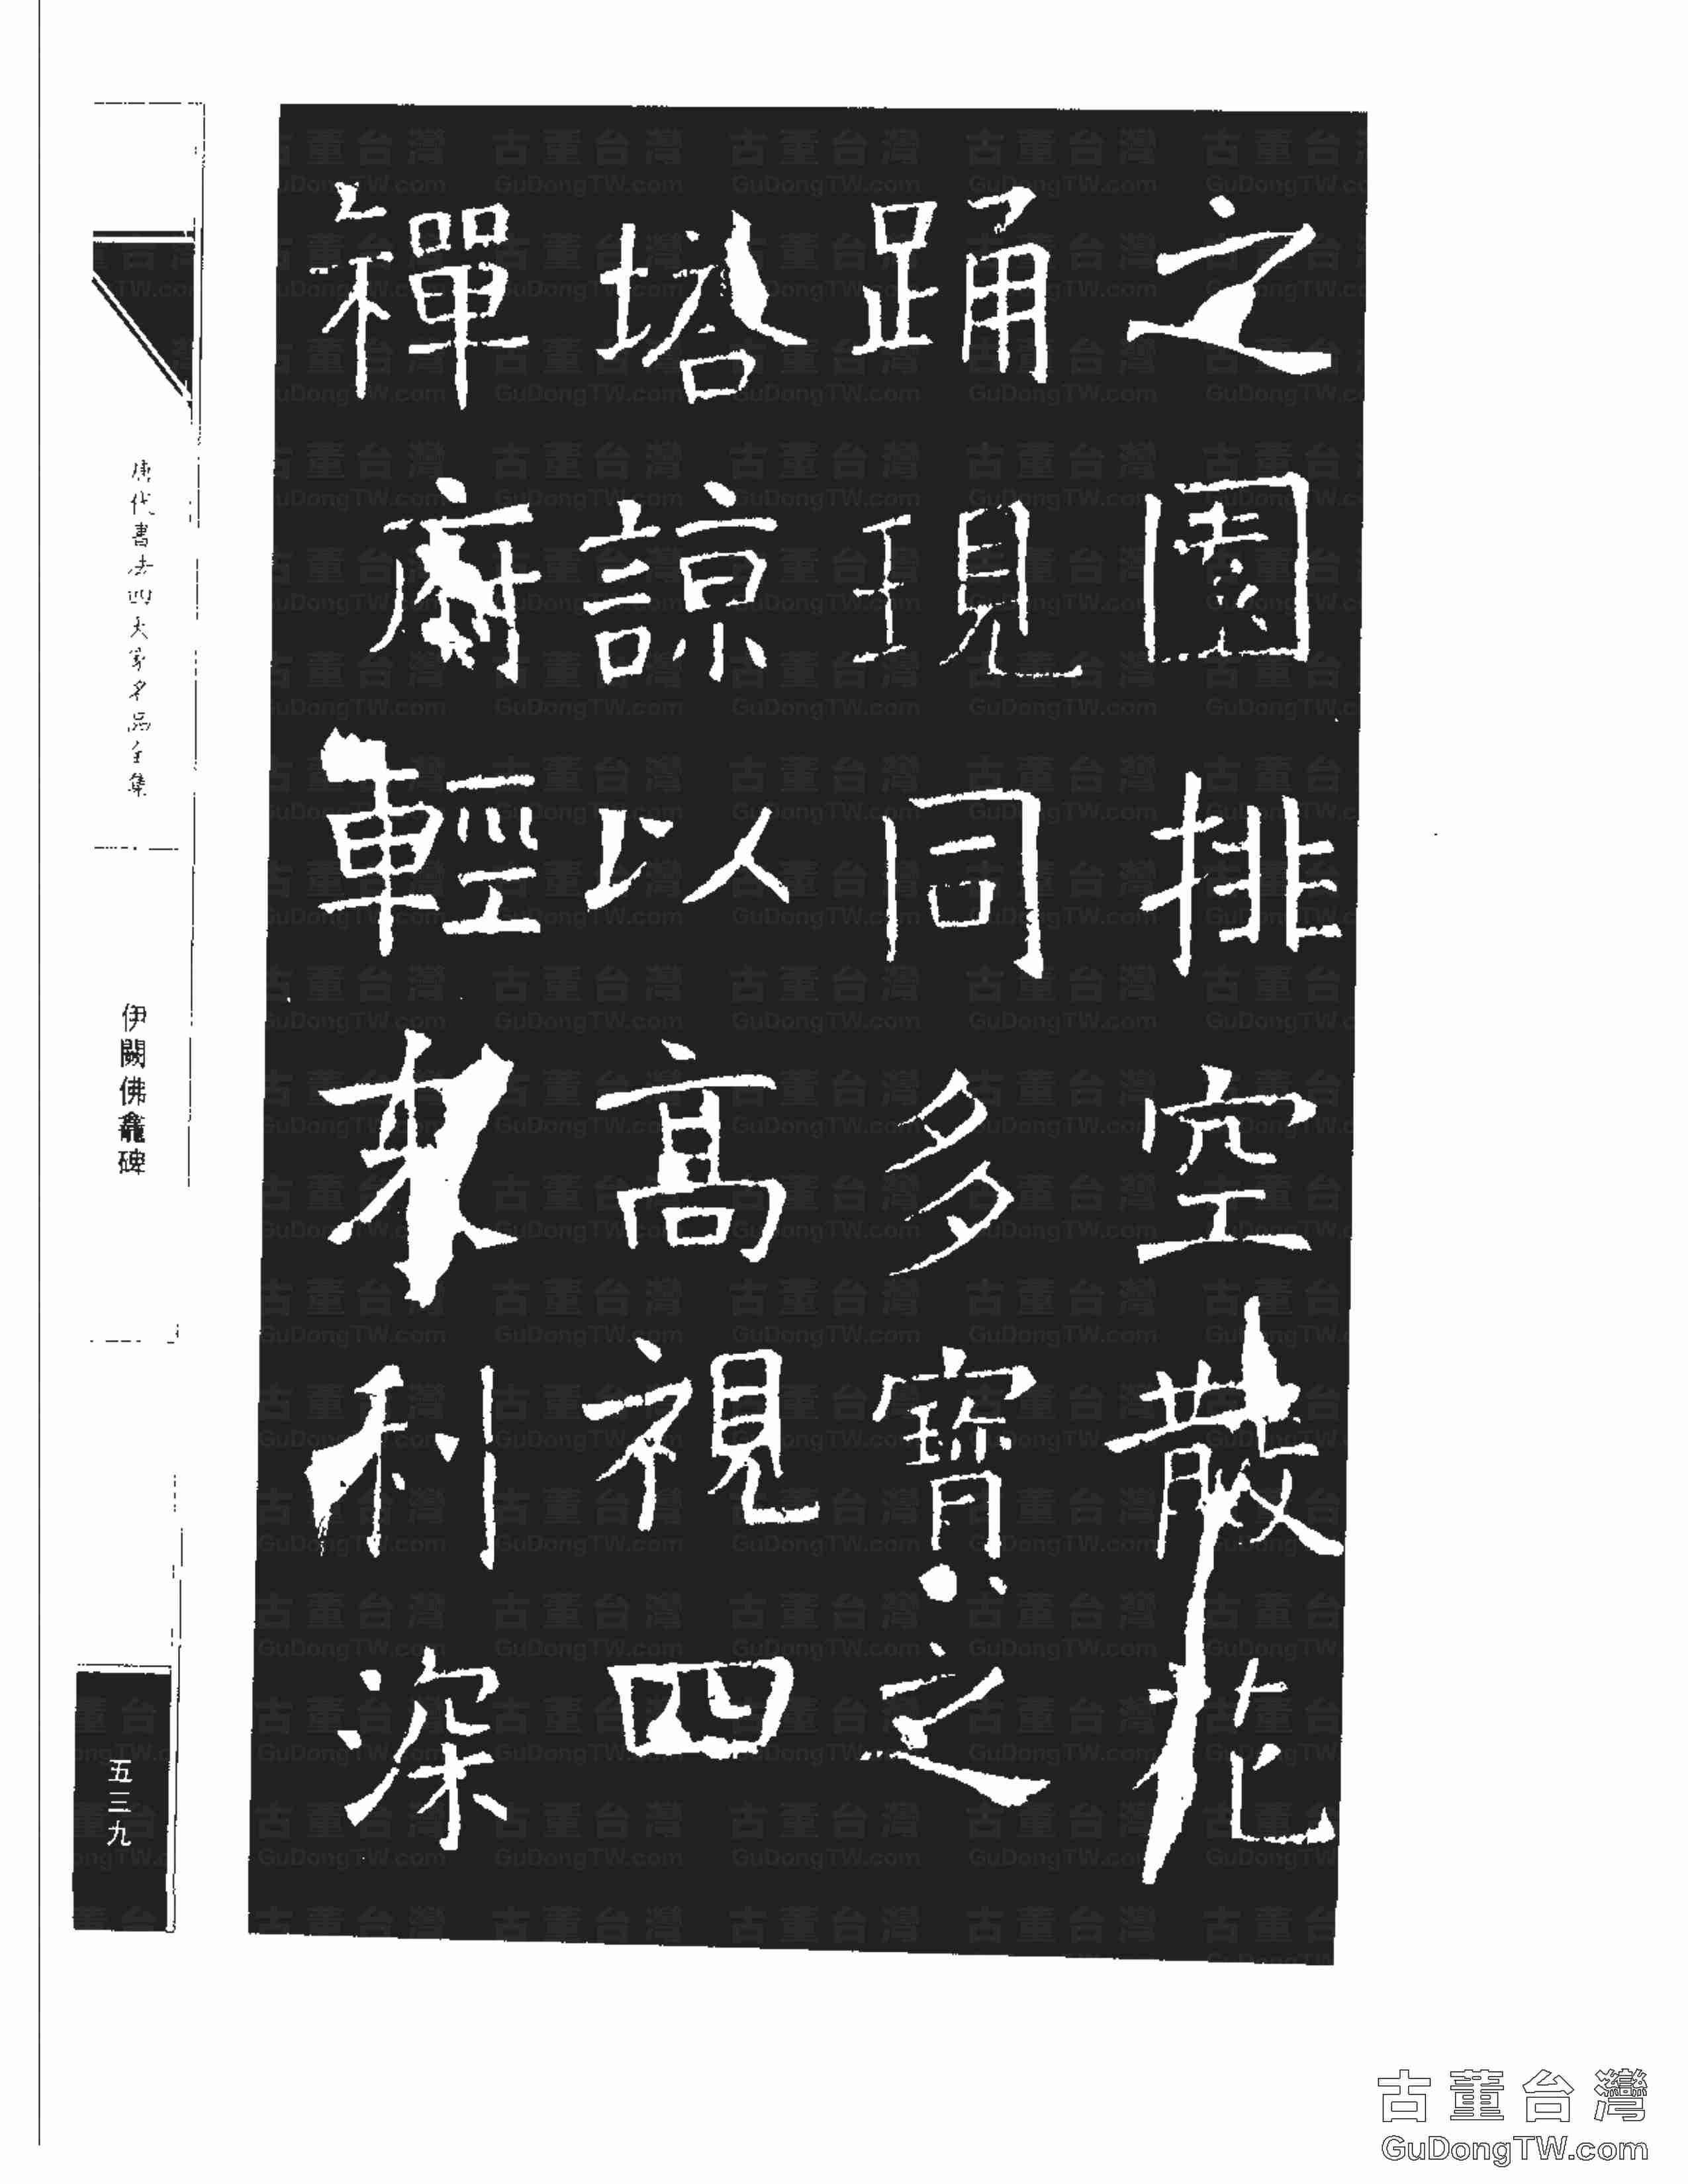 之園排空散花
踊現同多寶之
塔諒以高視四
禪府輕來利深
唐代書法四大家名品全集
伊闕佛龕碑
五三九
古董台灣
GuDongTW.com